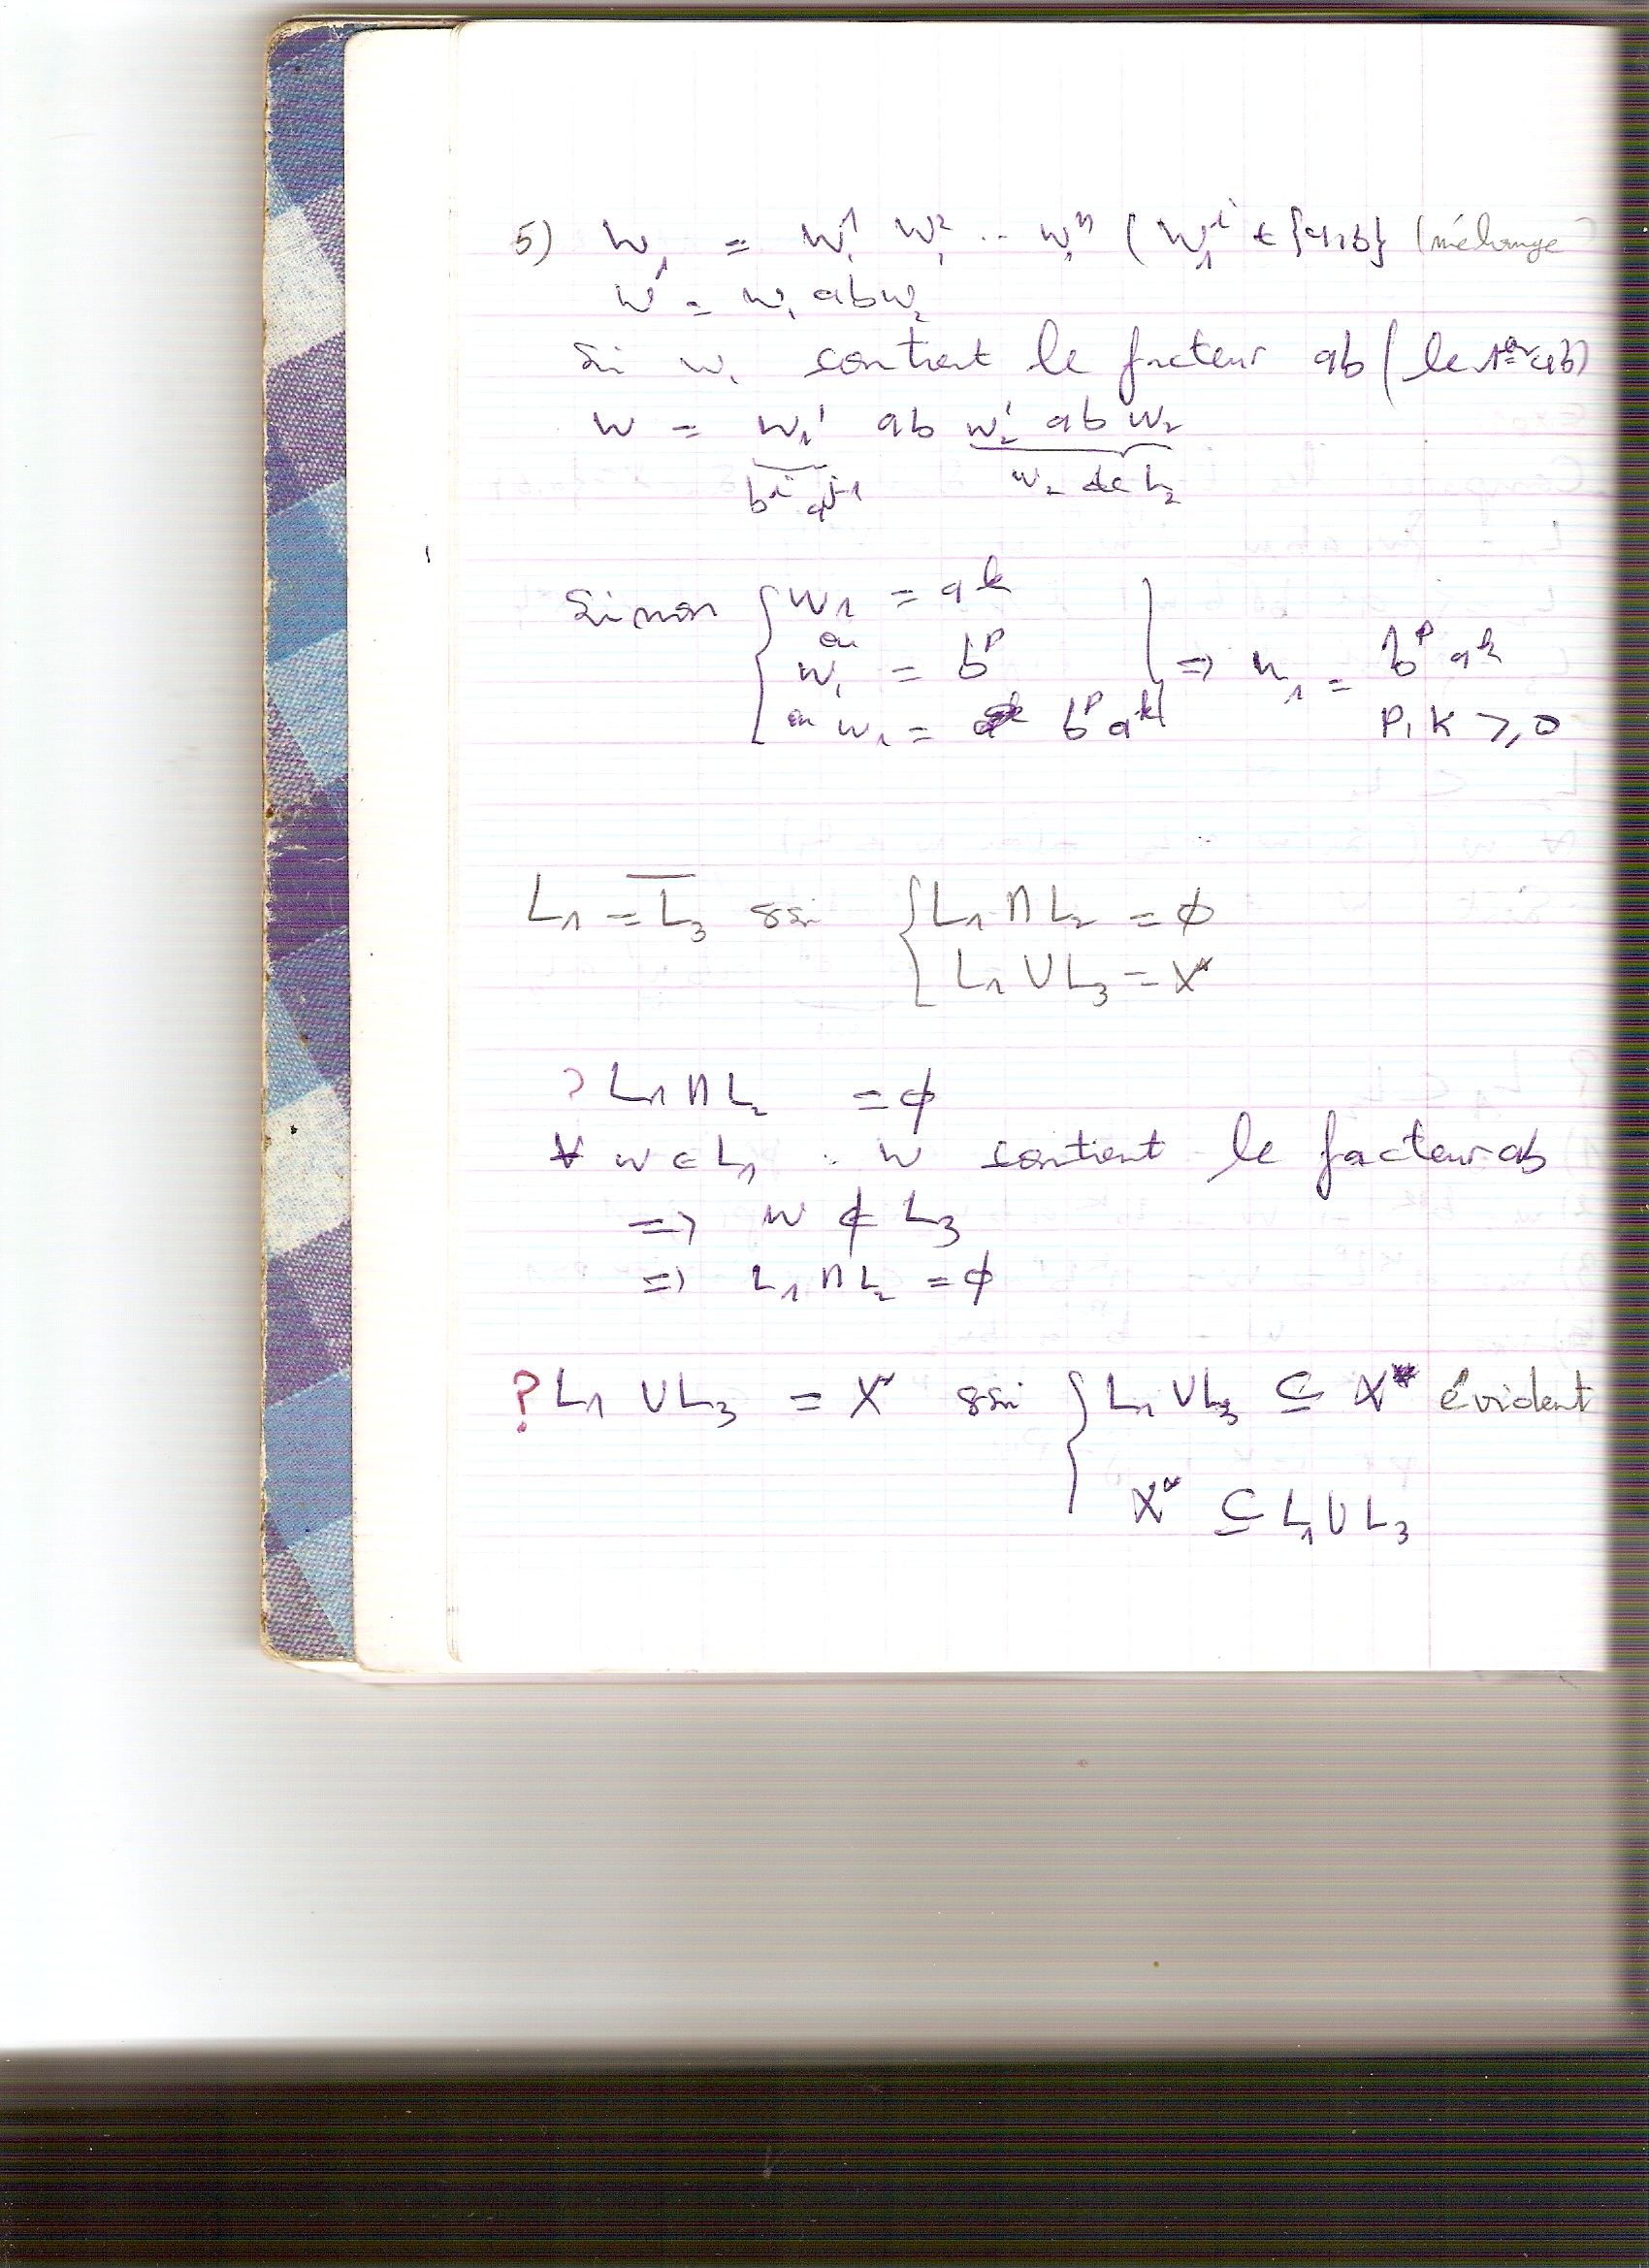 5) w₁ = w₁¹ w₁² .. w₁ⁿ ( w₁ⁱ ∈ {a,b} (mélange
w = w₁ abw₂
Si w₁ contient le facteur ab ( le 1er ab)
w = w₁' ab w₂' ab w₂
bⁱ aʲ⁻¹ w₂ de L₂
Sinon { w₁ = aᵏ
ou
w₁ = bᵖ } => w₁ = bᵖ aᵏ
ou w₁ = bᵖ aᵏ P, K ≥ 0
L₁ = L̅₃ ssi { L₁ ∩ L₂ = ∅
L₁ ∪ L₃ = X*
? L₁ ∩ L₂ = ∅
∀ w ∈ L₁ : w contient le facteur ab
=> w ∉ L₃
=> L₁ ∩ L₂ = ∅
? L₁ ∪ L₃ = X* ssi { L₁ ∪ L₃ ⊆ X* évident
X* ⊆ L₁ ∪ L₃